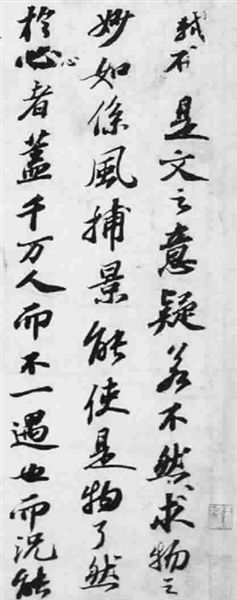 是文之意疑若不然求物之
妙如係風捕景能使是物了然
於心者蓋千万人而不一遇也而況能